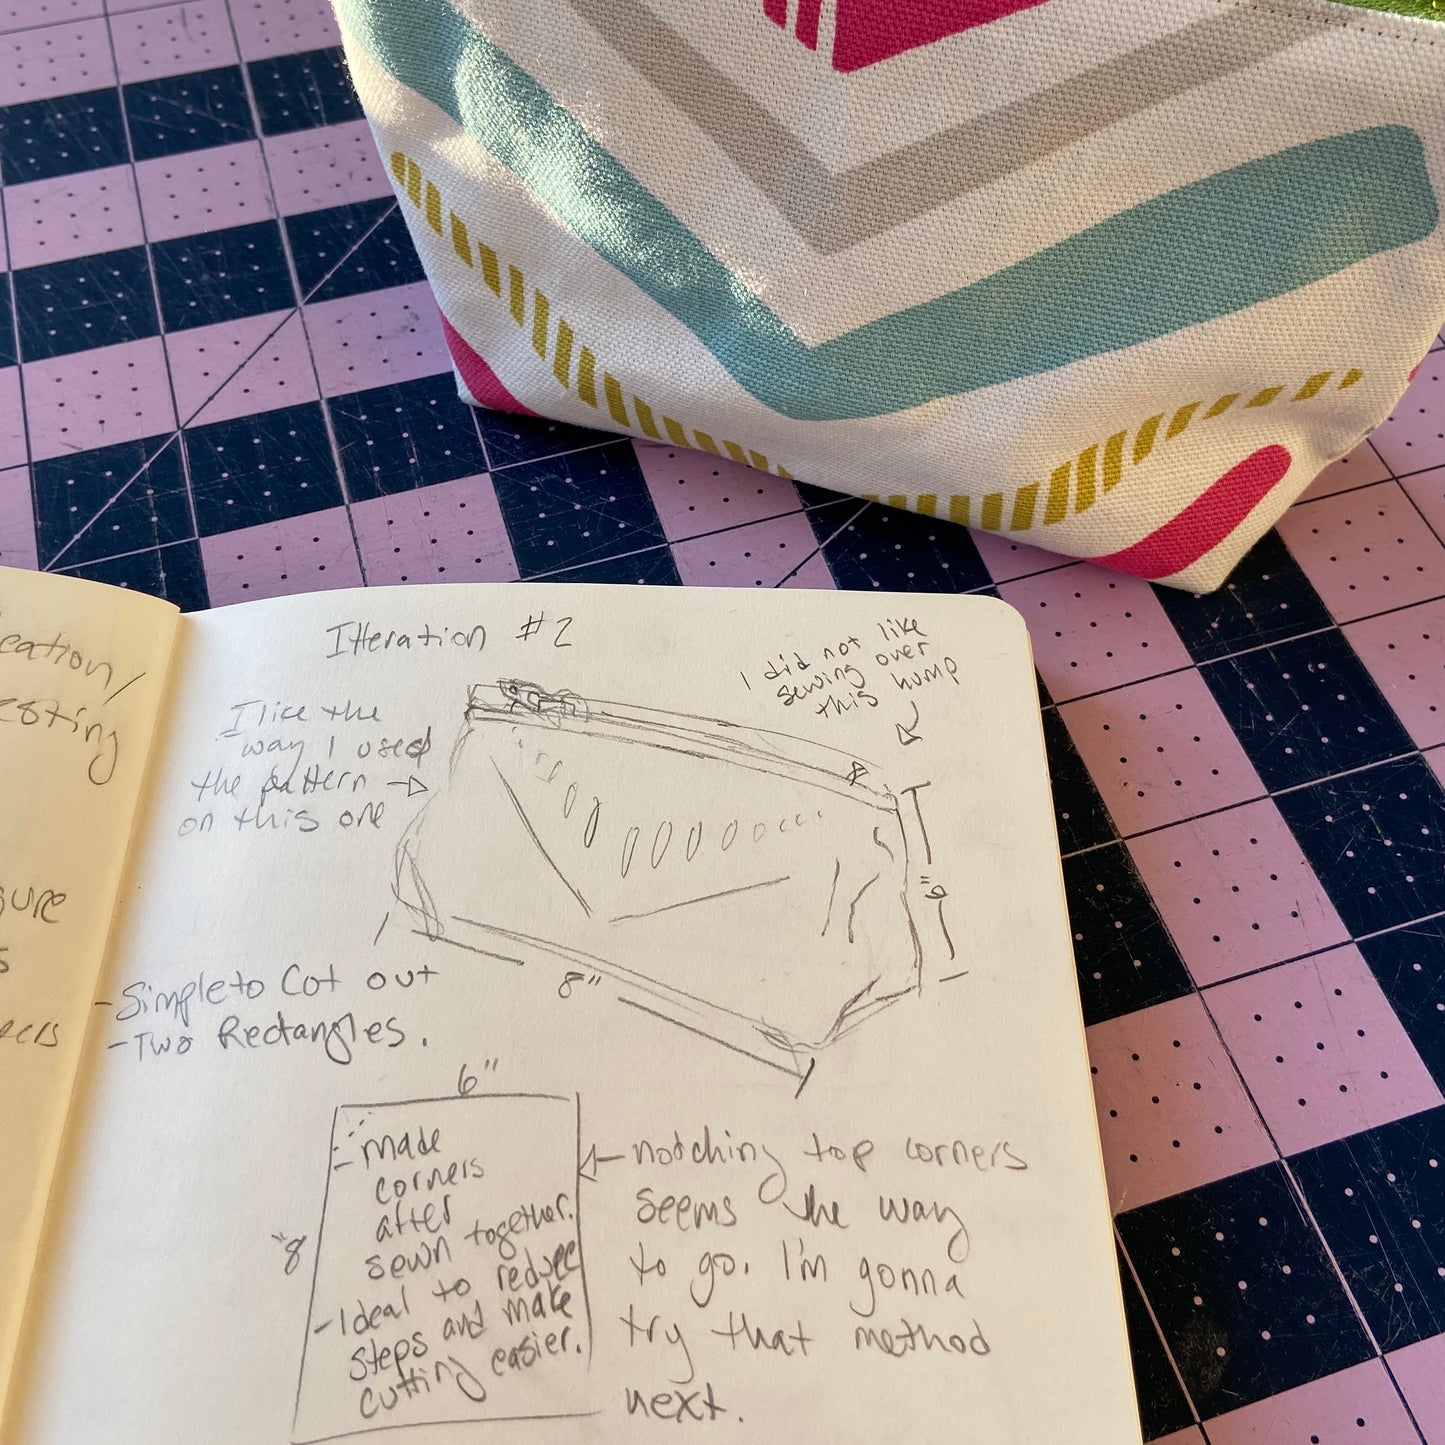 Itteration #2
I did not like
sewing over
this hump
I like the
way I used
the pattern
on this one
6"
8"
- Simple to Cut out
- Two Rectangles.
6"
8"
- made
corners
after
sewn together.
- Ideal to reduce
steps and make
cutting easier.
notching top corners
seems the way
to go. I'm gonna
try that method
next.